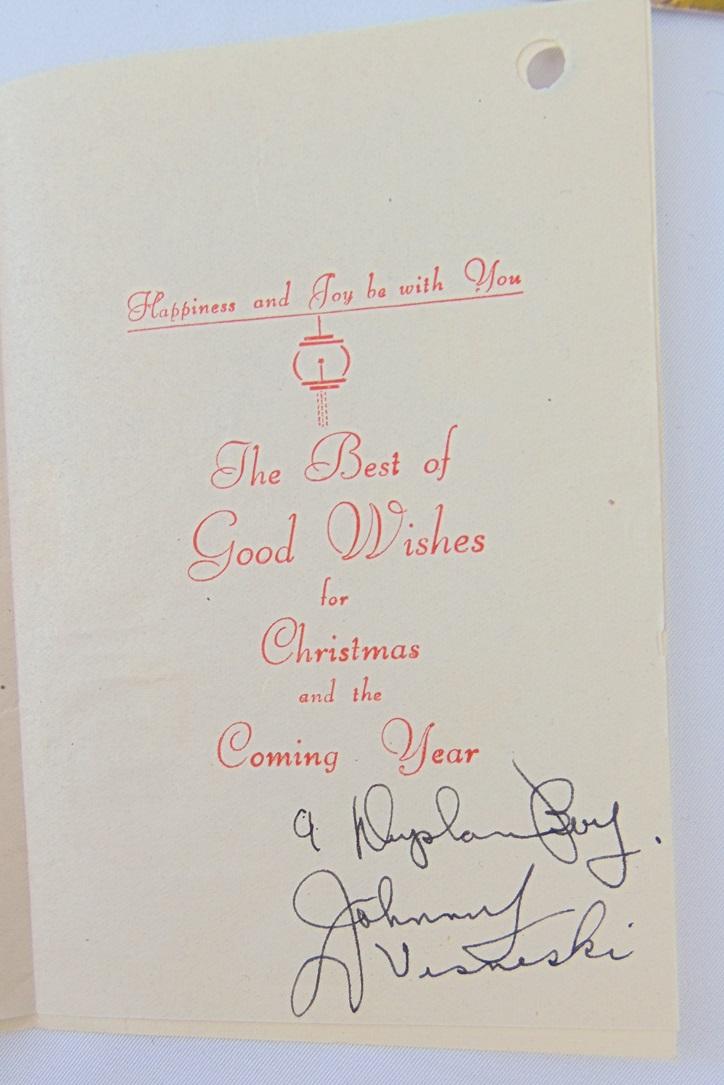 Happiness and Joy be with You
The Best of
Good Wishes
for
Christmas
and the
Coming Year
a Duplan Boy.
Johnny
Visneski